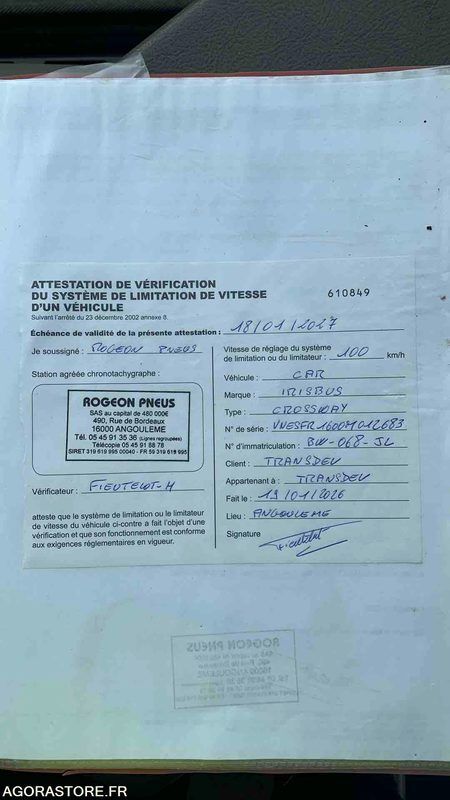 ATTESTATION DE VÉRIFICATION
DU SYSTÈME DE LIMITATION DE VITESSE
D'UN VÉHICULE
610849
Suivant l'arrêté du 23 décembre 2002 annexe 8.
Échéance de validité de la présente attestation : 18/01/2027
Je soussigné : ROGEON PNEUS
Station agréée chronotachygraphe :
ROGEON PNEUS
SAS au capital de 480 000€
490, Rue de Bordeaux
16000 ANGOULEME
Tél. 05 45 91 35 36 (Lignes regroupées)
Télécopie 05 45 91 88 78
SIRET 319 619 995 00040 - FR 59 319 619 995
Vérificateur :
atteste que le système de limitation ou le limiteur
de vitesse du véhicule ci-contre a fait l'objet d'une
vérification et que son fonctionnement est conforme
aux exigences réglementaires en vigueur.
Vitesse de réglage du système
de limitation ou du limiteur : 100 km/h
Véhicule : CAR
Marque : IRISBUS
Type : CROSSWAY
N° de série : VNESFR1600M012683
N° d'immatriculation : BW-068-JL
Client : TRANSDEV
Appartenant à : TRANSDEV
Fait le : 19/01/2026
Lieu : ANGOULEME
Signature
ROGEON PNEUS
AGORASTORE.FR